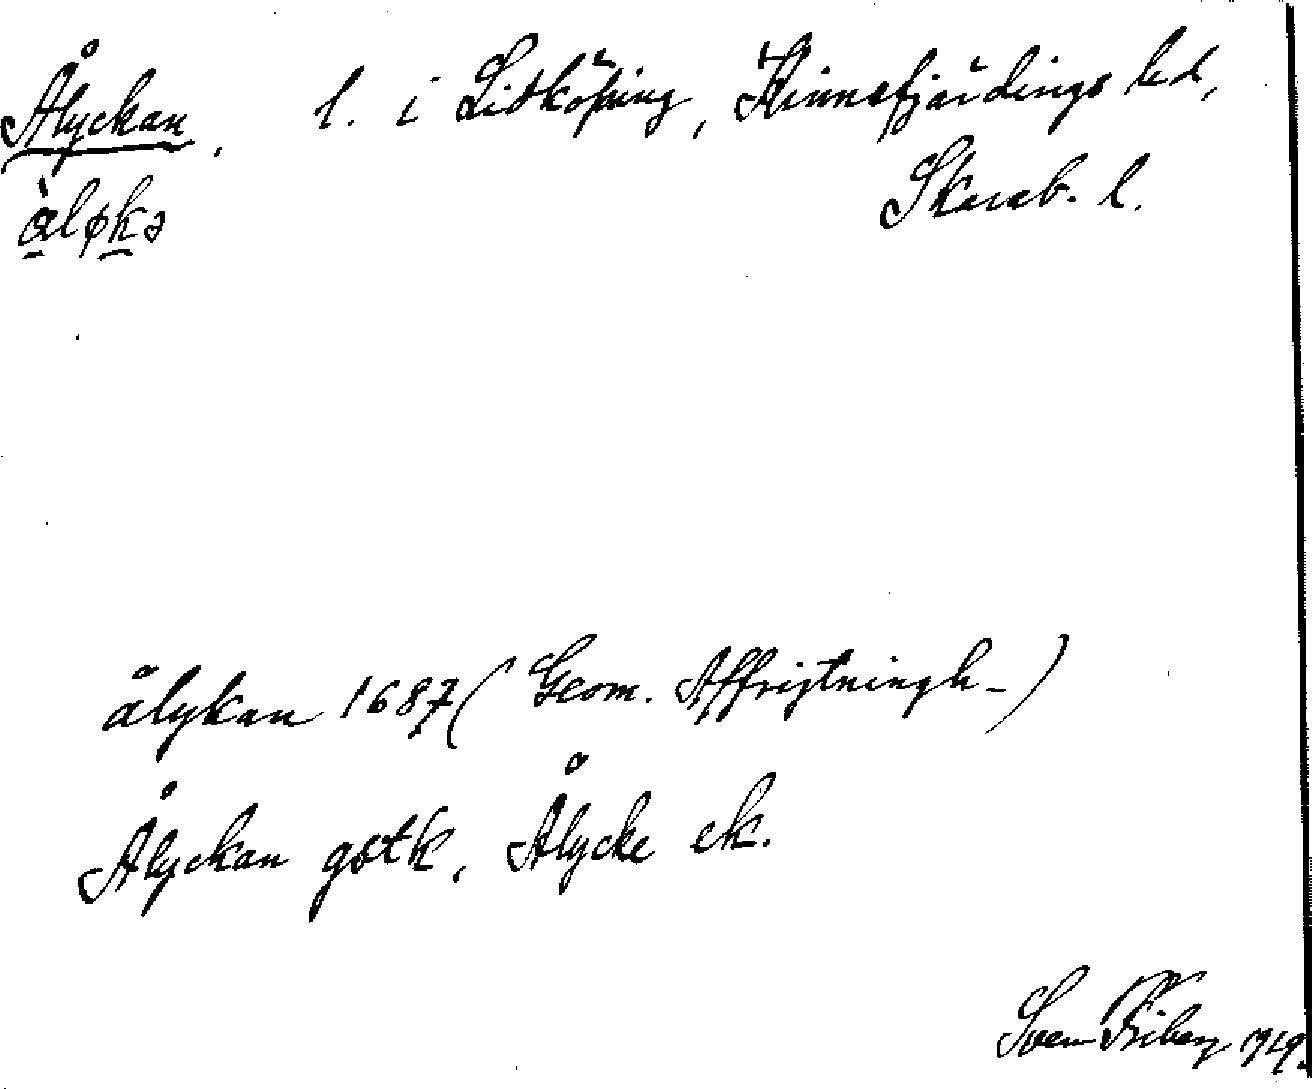 Ålyckan, l. i Lidköping, Kinnefjärdings hd,
Skarab. l.
àlφkə
ålykan 1687 (Geom. Affrijtningh-)
Ålyckan gstk, Ålycke ek.
Sven Friberg 1919.